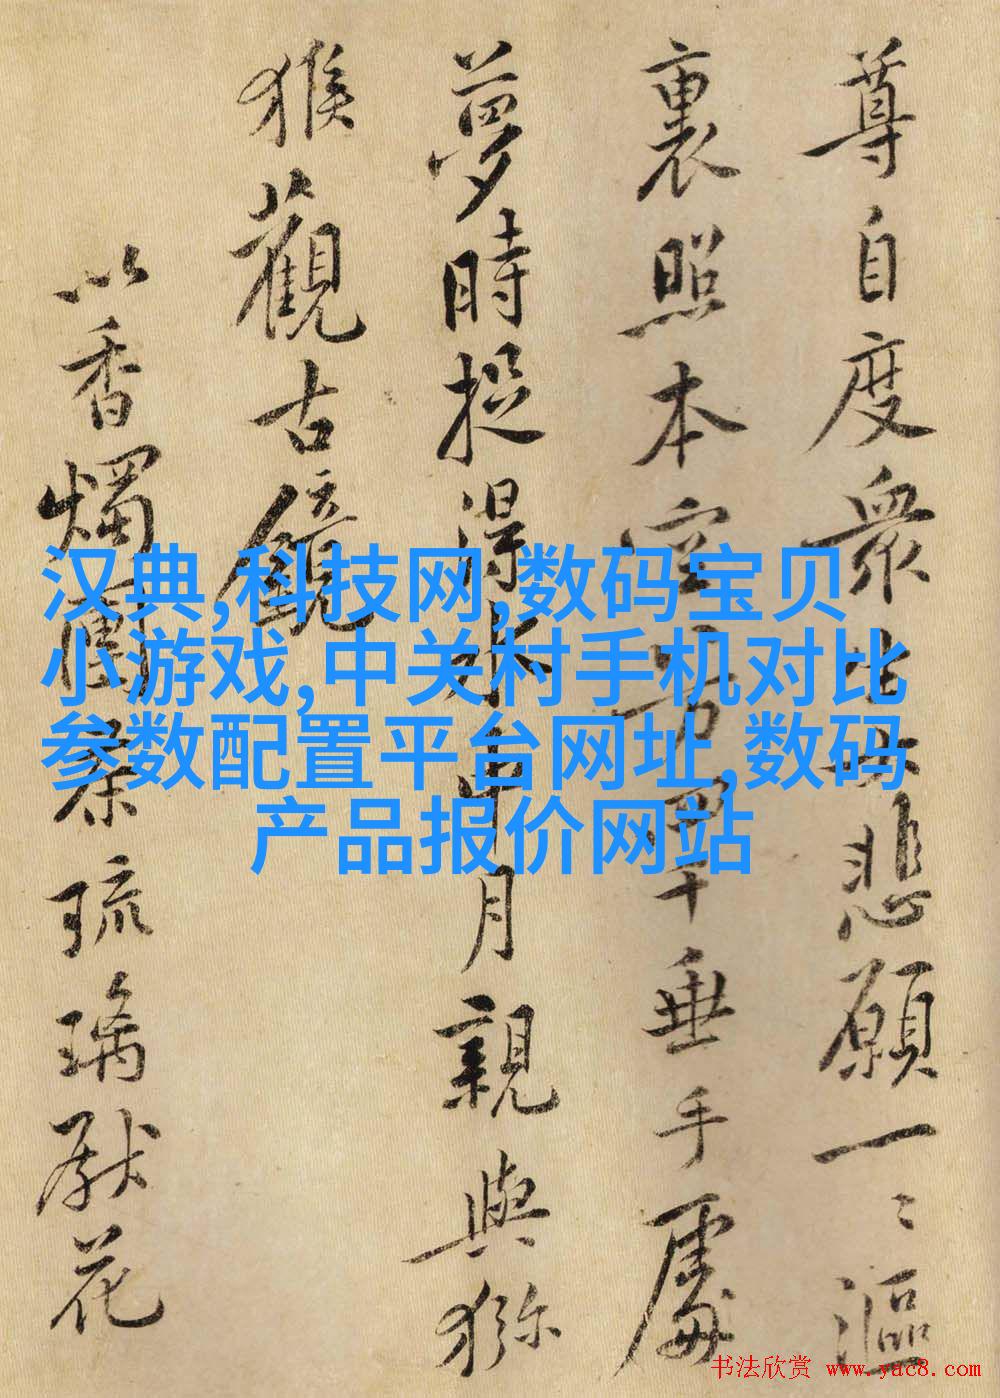 尊自度衆生大悲願一〻漚
裏照本空方垂手處
夢時捉得水中月親與獼
猴觀古鏡
以香燭團茶琉璃獻花
汉典,科技网,数码宝贝
小游戏,中关村手机对比
参数配置平台网址,数码
产品报价网站
书法欣赏 www.yac8.com